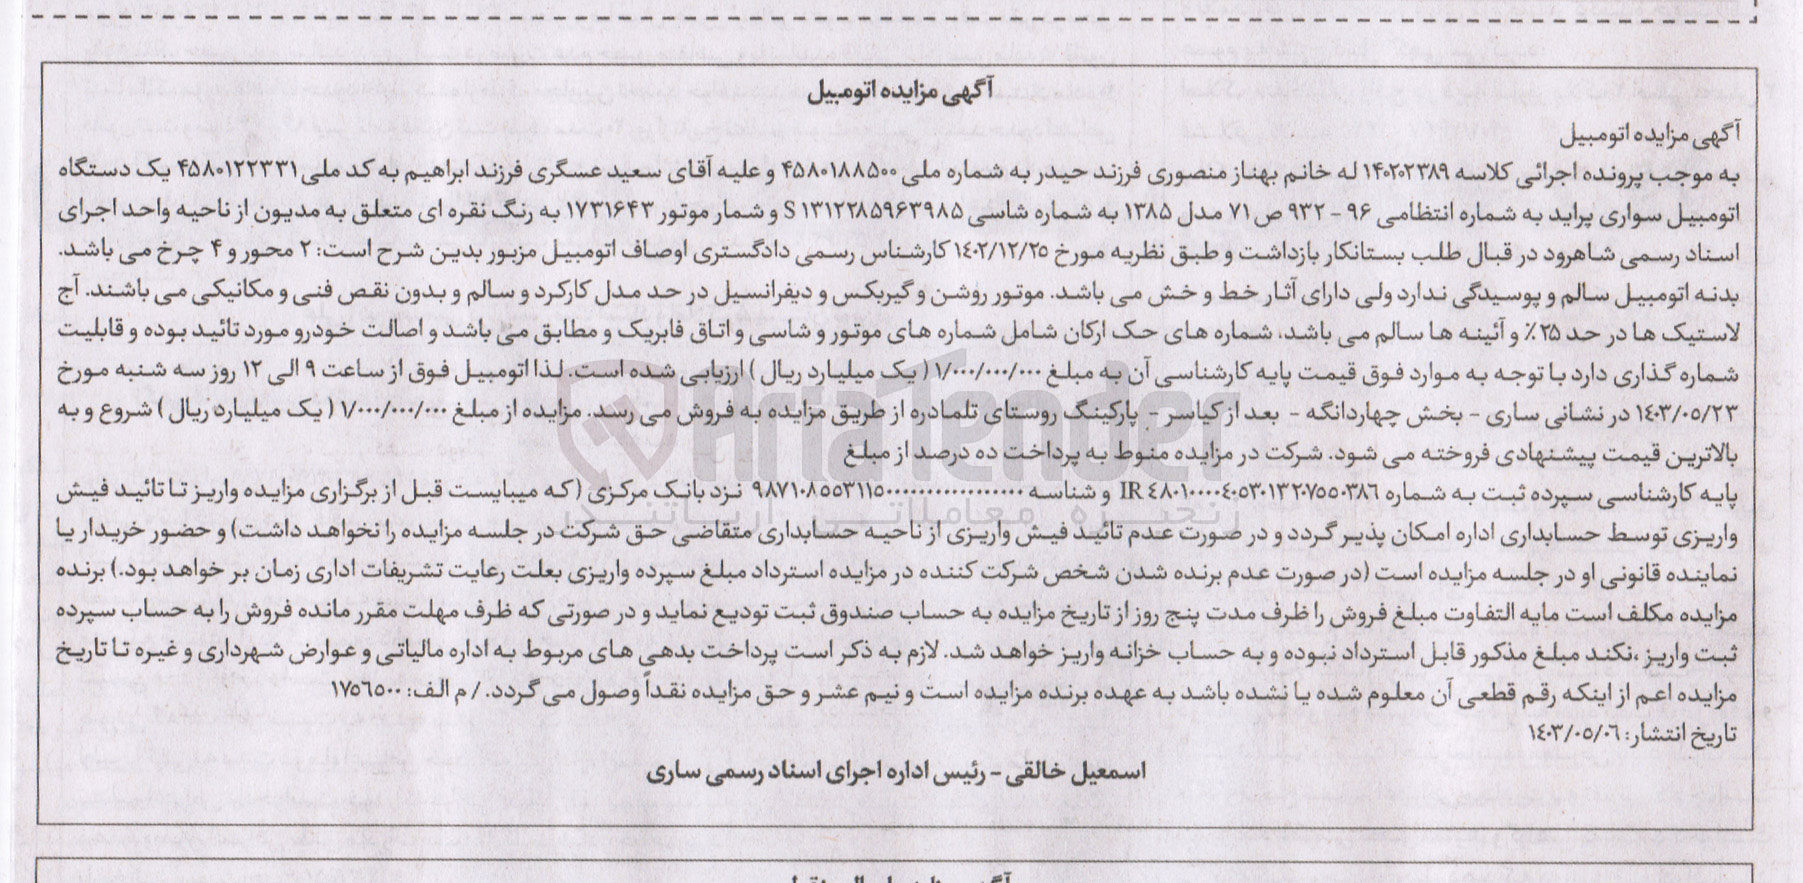 آگهی مزایده اتومبیل
آگهی مزایده اتومبیل
به موجب پرونده اجرائی کلاسه ۱۴۰۲۰۲۳۸۹ له خانم بهناز منصوری فرزند حیدر به شماره ملی ۴۵۸۰۱۸۸۵۰۰ و علیه آقای سعید عسگری فرزند ابراهیم به کد ملی ۴۵۸۰۱۲۲۳۳۱ یک دستگاه
اتومبیل سواری پراید به شماره انتظامی ۹۶ - ۹۳۲ ص ۷۱ مدل ۱۳۸۵ به شماره شاسی S ۱۳۱۲۲۸۵۹۶۳۹۸۵ و شمار موتور ۱۷۳۱۶۴۳ به رنگ نقره ای متعلق به مدیون از ناحیه واحد اجرای
اسناد رسمی شاهرود در قبال طلب بستانکار بازداشت و طبق نظریه مورخ ۱۴۰۲/۱۲/۲۵ کارشناس رسمی دادگستری اوصاف اتومبیل مزبور بدین شرح است: ۲ محور و ۴ چرخ می باشد.
بدنه اتومبیل سالم و پوسیدگی ندارد ولی دارای آثار خط و خش می باشد. موتور روشن و گیربکس و دیفرانسیل در حد مدل کارکرد و سالم و بدون نقص فنی و مکانیکی می باشند. آج
لاستیک ها در حد ۲۵٪ و آئینه ها سالم می باشد، شماره های حک ارکان شامل شماره های موتور و شاسی و اتاق فابریک و مطابق می باشد و اصالت خودرو مورد تائید بوده و قابلیت
شماره گذاری دارد با توجه به موارد فوق قیمت پایه کارشناسی آن به مبلغ ۱/۰۰۰/۰۰۰/۰۰۰ ( یک میلیارد ریال ) ارزیابی شده است. لذا اتومبیل فوق از ساعت ۹ الی ۱۲ روز سه شنبه مورخ
۱۴۰۳/۰۵/۲۳ در نشانی ساری - بخش چهاردانگه - بعد از کیاسر - پارکینگ روستای تلمادره از طریق مزایده به فروش می رسد. مزایده از مبلغ ۱/۰۰۰/۰۰۰/۰۰۰ ( یک میلیارد ریال ) شروع و به
بالاترین قیمت پیشنهادی فروخته می شود. شرکت در مزایده منوط به پرداخت ده درصد از مبلغ
پایه کارشناسی سپرده ثبت به شماره IR ۴۸۰۱۰۰۰۰۴۰۵۳۰۱۳۲۰۷۵۵۰۳۸۶ و شناسه ۹۸۷۱۰۸۵۵۳۱۱۵۰۰۰۰۰۰۰۰۰۰۰۰۰۰۰۰۰ نزد بانک مرکزی ( که میبایست قبل از برگزاری مزایده واریز تا تائید فیش
واریزی توسط حسابداری اداره امکان پذیر گردد و در صورت عدم تائید فیش واریزی از ناحیه حسابداری متقاضی حق شرکت در جلسه مزایده را نخواهد داشت) و حضور خریدار یا
نماینده قانونی او در جلسه مزایده است (در صورت عدم برنده شدن شخص شرکت کننده در مزایده استرداد مبلغ سپرده واریزی بعلت رعایت تشریفات اداری زمان بر خواهد بود.) برنده
مزایده مکلف است مابه التفاوت مبلغ فروش را ظرف مدت پنج روز از تاریخ مزایده به حساب صندوق ثبت تودیع نماید و در صورتی که ظرف مهلت مقرر مانده فروش را به حساب سپرده
ثبت واریز ،نکند مبلغ مذکور قابل استرداد نبوده و به حساب خزانه واریز خواهد شد. لازم به ذکر است پرداخت بدهی های مربوط به اداره مالیاتی و عوارض شهرداری و غیره تا تاریخ
مزایده اعم از اینکه رقم قطعی آن معلوم شده یا نشده باشد به عهده برنده مزایده است و نیم عشر و حق مزایده نقداً وصول می گردد. / م الف: ۱۷۵۶۵۰۰
تاریخ انتشار: ۱۴۰۳/۰۵/۰۶
اسمعیل خالقی - رئیس اداره اجرای اسناد رسمی ساری
AriaTender
زنجیره معاملاتی آریاتندر